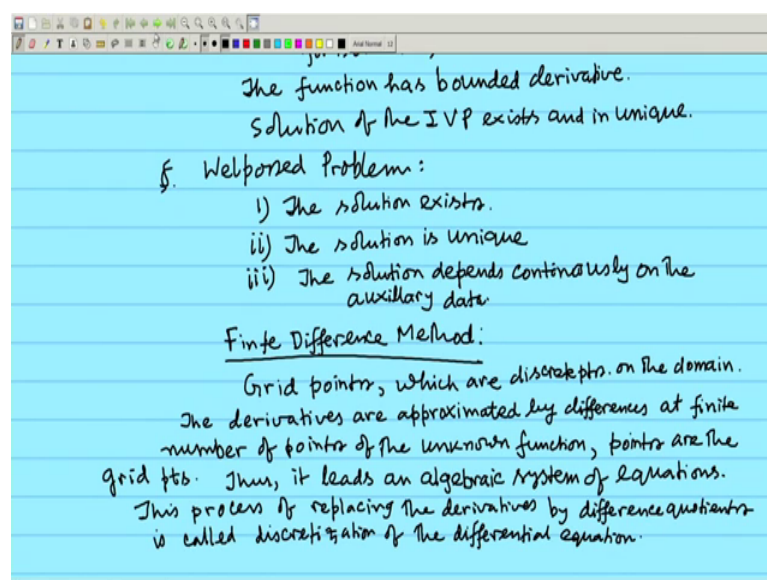 Arial Normal 12
The function has bounded derivative.
Solution of the IVP exists and in unique.
§. Welposed Problem:
i) The solution exists.
ii) The solution is unique
iii) The solution depends continously on the
auxillary data.
Finte Difference Method:
Grid points, which are discrete pts. on the domain.
The derivatives are approximated by differences at finite
number of points of the unknown function, points are the
grid pts. Thus, it leads an algebraic system of equations.
This process of replacing the derivatives by difference quotients
is called discretization of the differential equation.